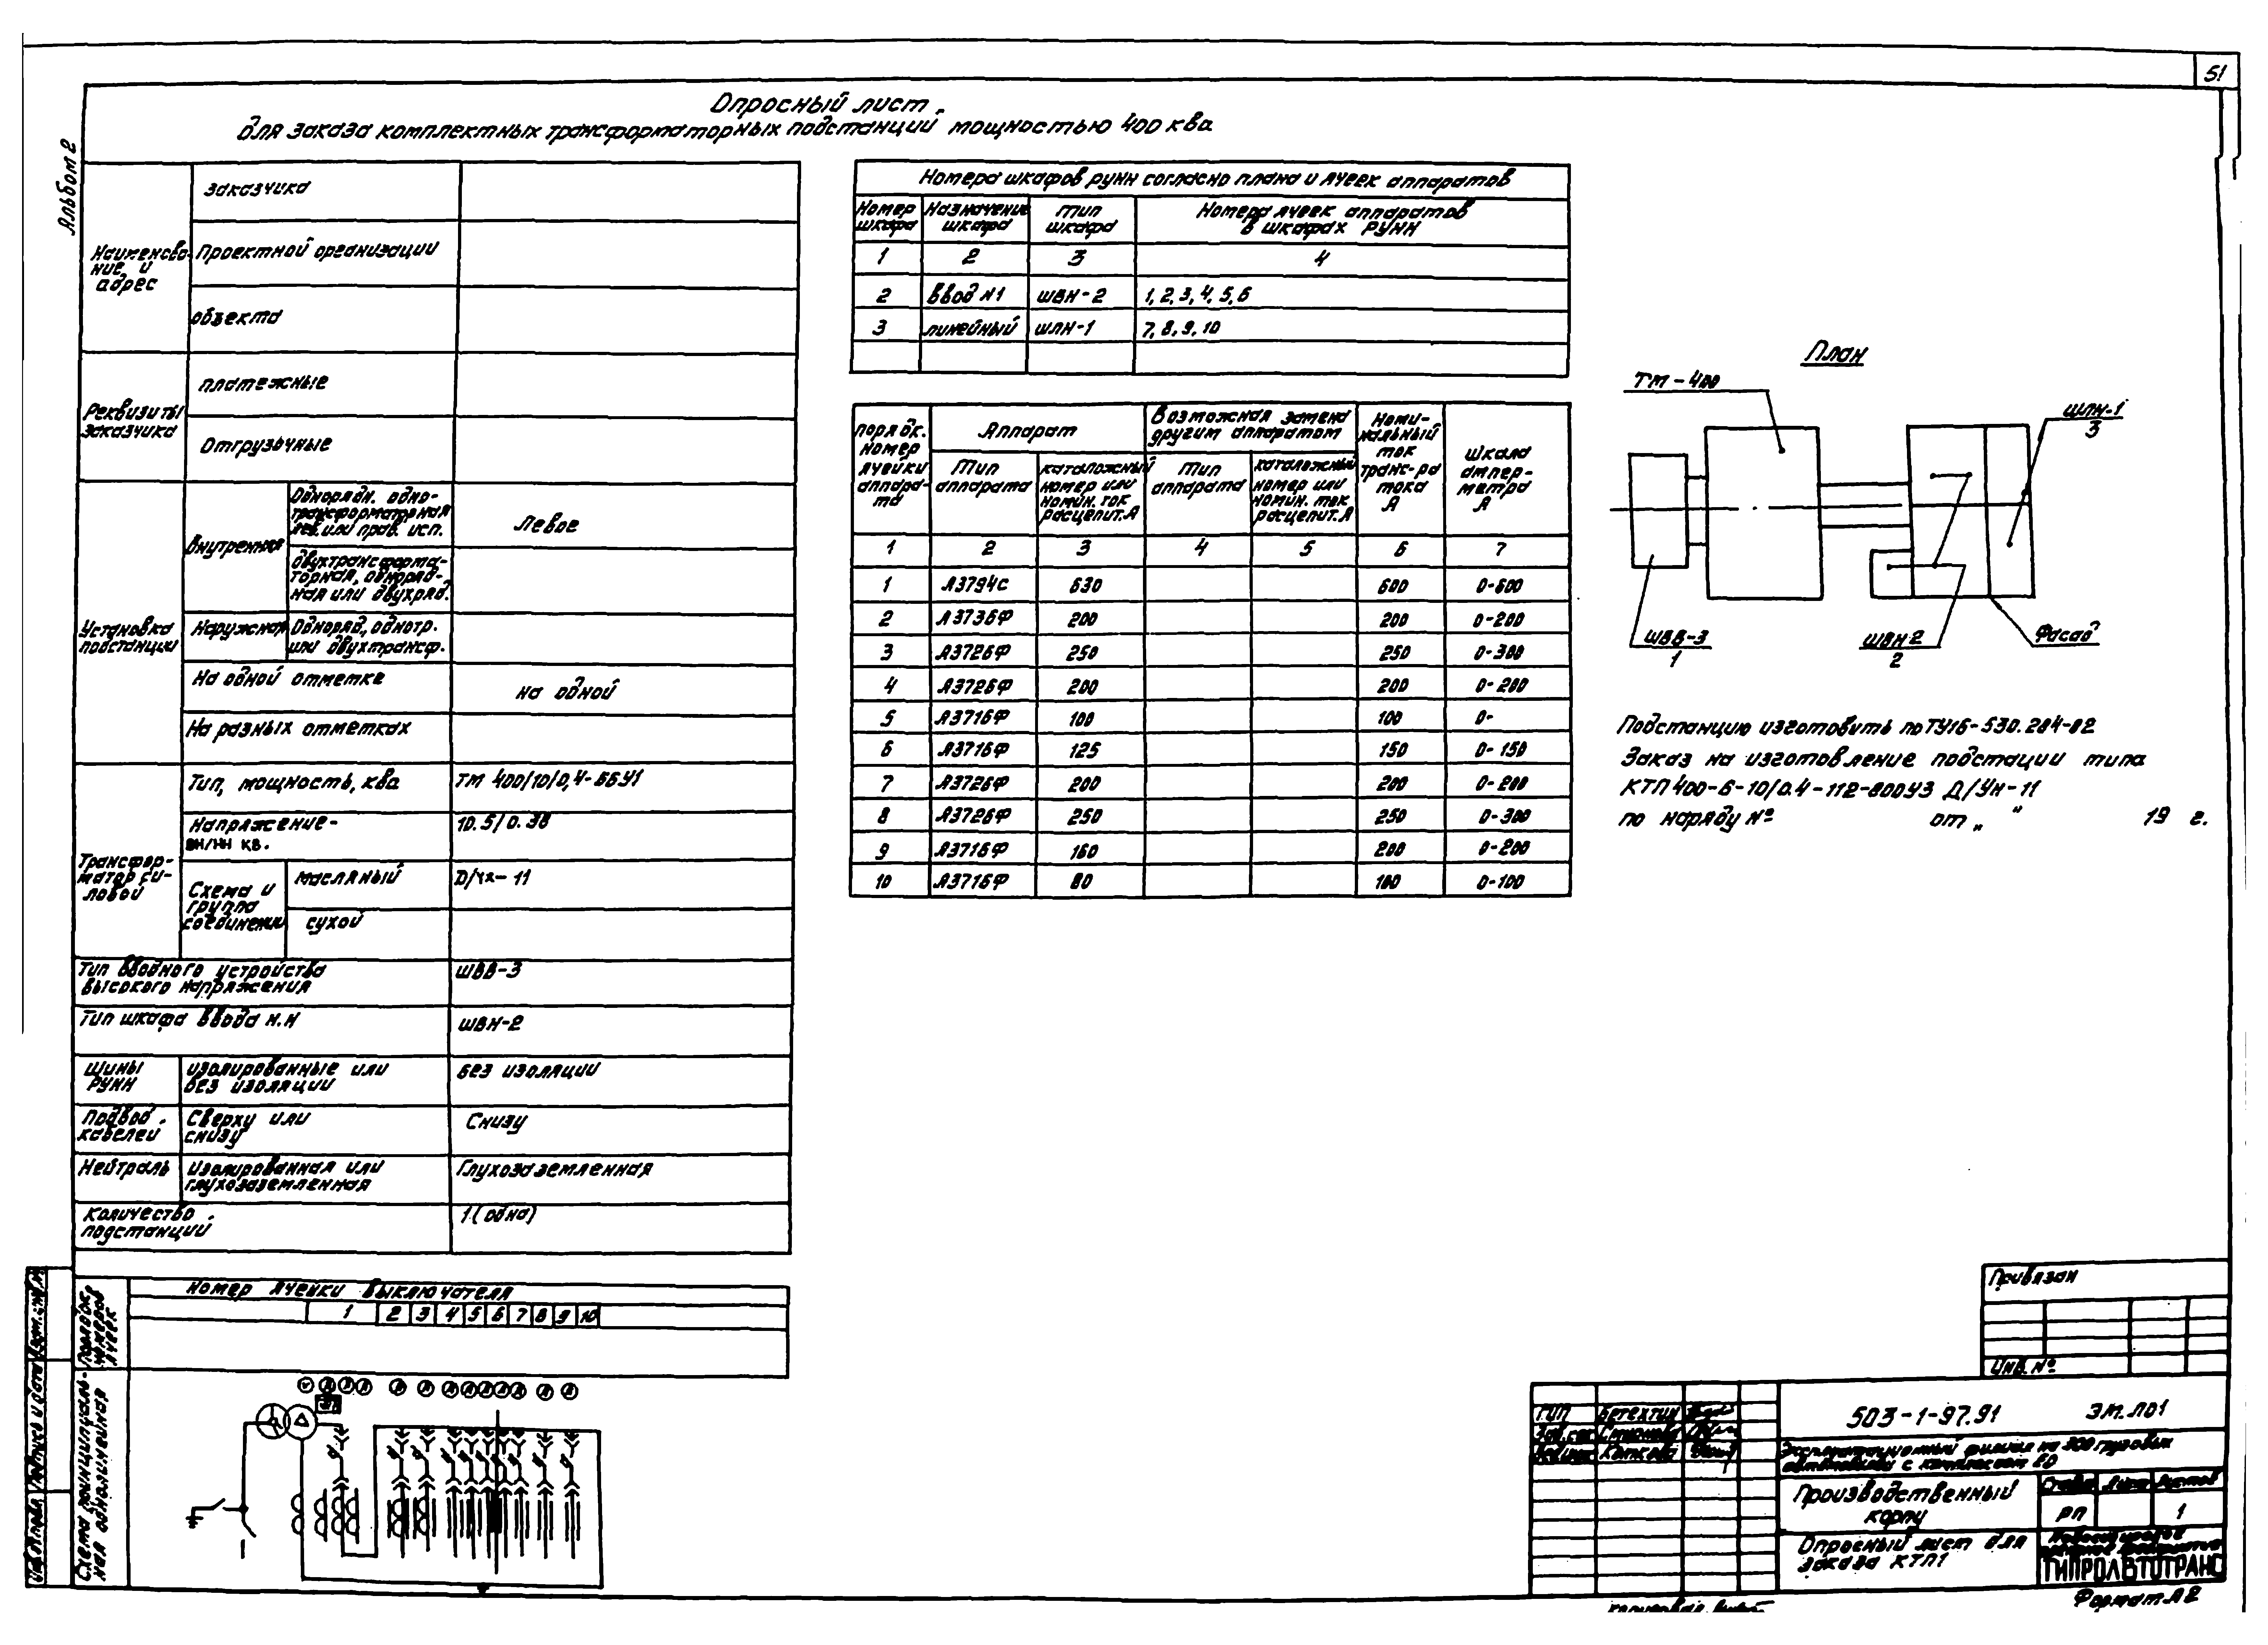 51
Альбом 2
Опросный лист
для заказа комплектных трансформаторных подстанций мощностью 400 ква
Наименова-
ние и
адрес
заказчика
Проектной организации
объекта
Реквизиты
заказчика
платежные
Отгрузочные
Установка
подстанции
Внутренняя
Однорядн. одно-
трансформаторная
лев. или прав. исп.
Левое
двухтрансформа-
торная, одноряд-
ная или двухряд.
Наружная
Одноряд, однотр.
или двухтрансф.
На одной отметке
на одной
На разных отметках
Трансфор-
матор си-
ловой
Тип, мощность, ква
ТМ 400/10/0,4-66У1
Напряжение-
ВН/НН кв.
10.5/0.38
Схема и
группа
соединения
масляный
Д/Ун-11
сухой
Тип вводного устройства
высокого напряжения
ШВВ-3
Тип шкафа ввода н.н
ШВН-2
Шины
РУНН
изолированные или
без изоляции
Без изоляции
Подвод
кабелей
Сверху или
снизу
Снизу
Нейтраль
изолированная или
глухозаземленная
Глухозаземленная
Количество
подстанций
1 (одна)
Номера шкафов РУНН согласно плана и ячеек аппаратов
Номер
шкафа
Назначение
шкафа
Тип
шкафа
Номера ячеек аппаратов
в шкафах РУНН
1 2 3 4
2 Ввод N1 ШВН-2 1, 2, 3, 4, 5, 6
3 линейный ШЛН-1 7, 8, 9, 10
порядк.
номер
ячейки
аппара-
та
Аппарат
Тип
аппарата
каталожный
номер или
номин. ток
расцепит. А
Возможная замена
другим аппаратом
Тип
аппарата
каталожный
номер или
номин. ток
расцепит. А
Номи-
нальный
ток
транс-ра
тока
А
Шкала
ампер-
метра
А
1 2 3 4 5 6 7
1 А3794С 630 600 0-600
2 А3736Ф 200 200 0-200
3 А3726Ф 250 250 0-300
4 А3726Ф 200 200 0-200
5 А3716Ф 100 100 0-
6 А3716Ф 125 150 0-150
7 А3726Ф 200 200 0-200
8 А3726Ф 250 250 0-300
9 А3716Ф 160 200 0-200
10 А3716Ф 80 100 0-100
План
ТМ-400
ШЛН-1
3
ШВВ-3
1
ШВН-2
2
Фасад
Подстанцию изготовить по ТУ16-530.284-82
Заказ на изготовление подстации типа
КТП 400-6-10/0.4-112-800У3 Д/Ун-11
по наряду № от „ “ 19 г.
Порядок.
номеров
ячеек
Номер ячейки выключателя
1 2 3 4 5 6 7 8 9 10
Схема принципиаль-
ная однолинейная
Привязан
Инв. №
ГИП Бетехтин
503-1-97.91 ЭМ.ЛО1
Эксплуатационный филиал на 300 грузовых
Производственный
корпу
Стадия Лист Листов
РП 1
Опросный лист для
заказа КТП1
ГИПРОАВТОТРАНС
Формат А2